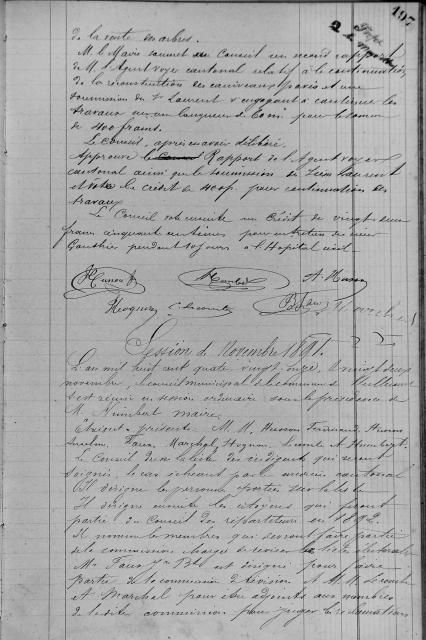 197
de la vente des arbres.
M. le Maire soumet au Conseil un second rapport
de M. l'Agent voyer cantonal relatif à la continuation
de la reconstruction des caniveaux pavés et une
soumission du Sr Laurent s'engageant à continuer les
travaux sur une longueur de pour la somme
de 400 francs.
Le Conseil, après en avoir délibéré.
Approuve le Rapport de l'Agent voyer
cantonal ainsi que la soumission de Léon Laurent
et vote le crédit de 400f. pour continuation des
travaux
Le Conseil vote ensuite un crédit de vingt deux
francs cinquante centimes pour entretien du sieur
Gauthier pendant jours à l'Hopital
A. Husson
Session de Novembre 1891.
L'an mil huit cent quatre vingt onze, le vingt deux
novembre, le conseil municipal de la commune de
s'est réuni en session ordinaire sous la présidence de
M. Humbert maire.
Etaient présents M. M. Husson Ferdinand,
Marchal, Lecomte & Humbert.
Le Conseil la liste des indigents qui seront
soignés le cas échéant par le médecin cantonal
Il désigne les personnes portées sur la liste
Il désigne ensuite les citoyens qui feront
partie du Conseil des répartiteurs en 1892.
Il nomme les membres qui devront faire partie
de la commission chargée de reviser la liste électorale
Mr est désigné pour faire
partie de la commission de révision et M. M. Lecomte
et Marchal pour être adjoints aux membres
de la dite commission pour juger les réclamations